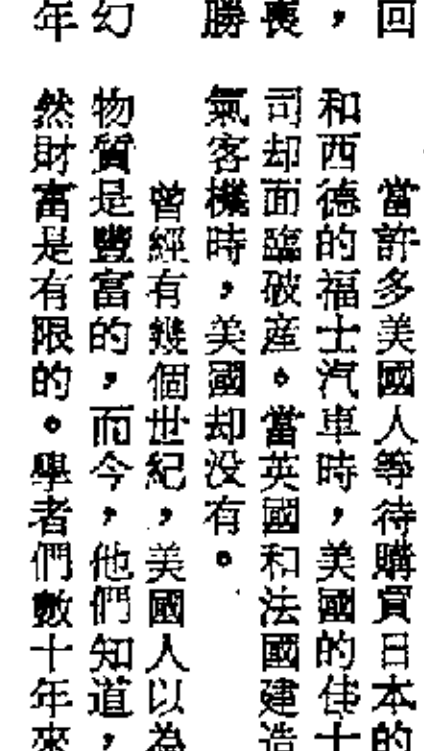 回
，
喪
勝
幻
年
當許多美國人等待購買日本的
和西德的福士汽車時，美國的佳士
司却面臨破産。當英國和法國建造
氣客機時，美國却没有。
曾經有幾個世紀，美國人以為
物質是豐富的，而今，他們知道，
然財富是有限的。學者們數十年來